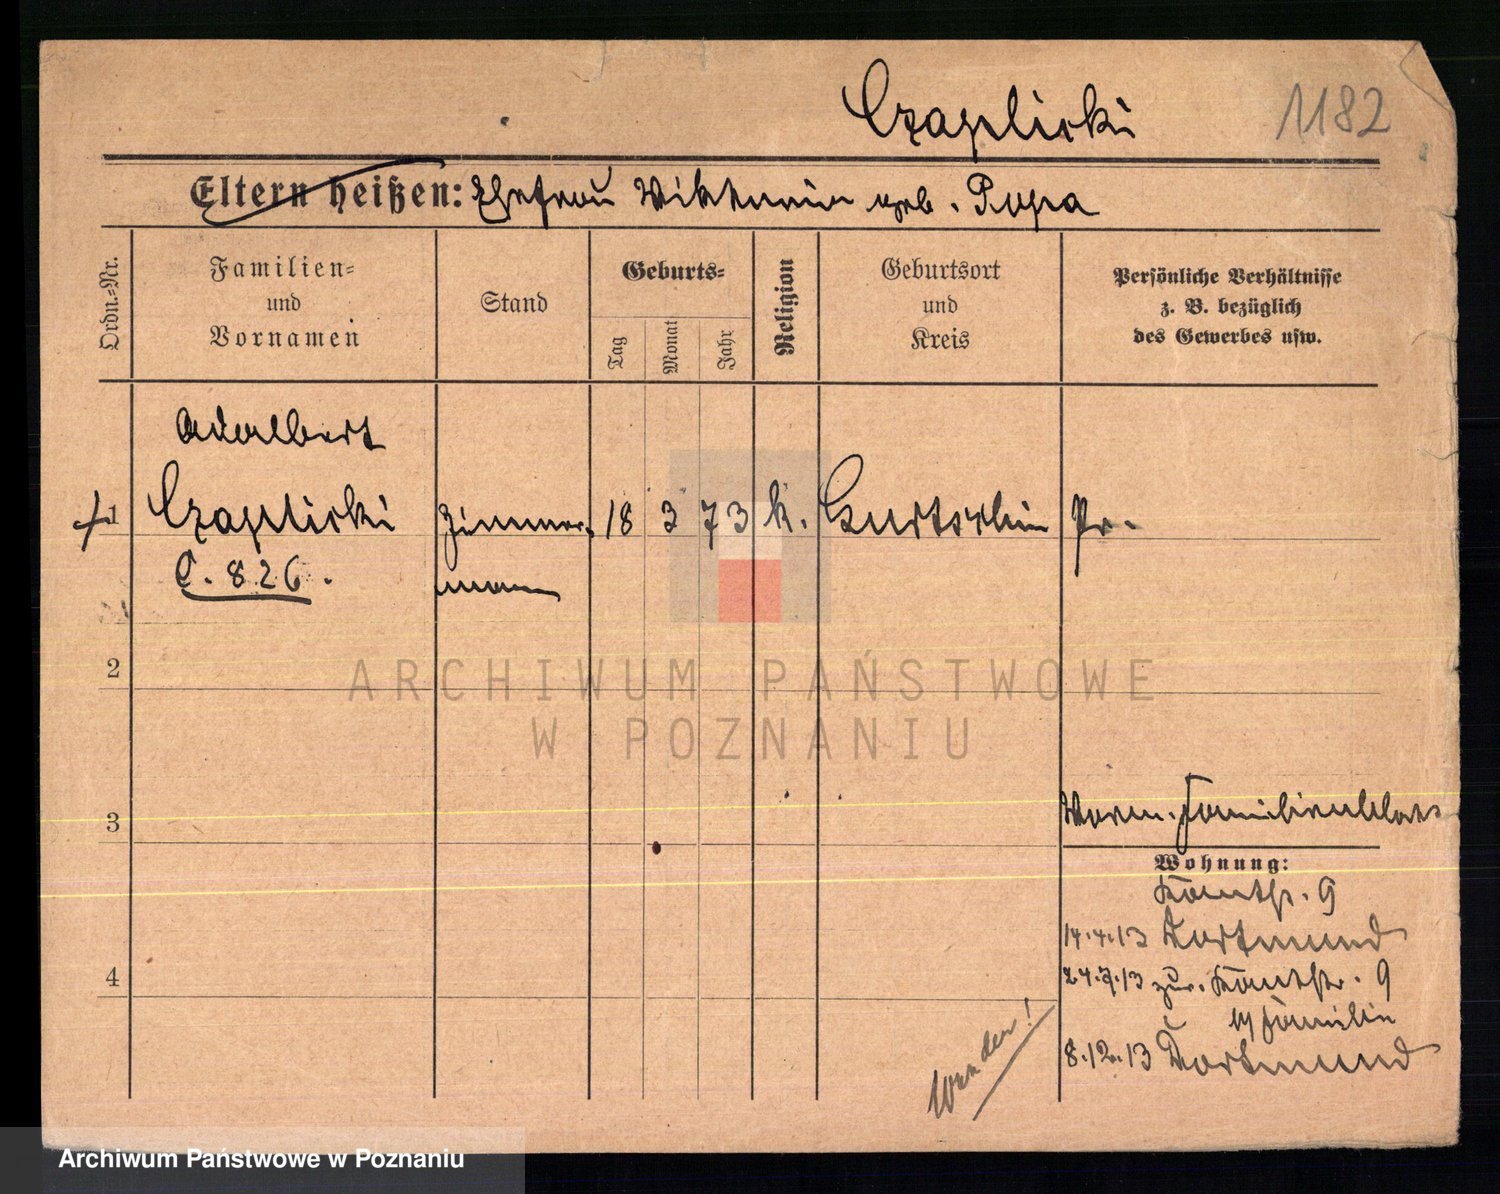 Czaplicki
1182
Eltern heißen: Ehefrau Viktoria geb. Popa
Ordn.-Nr.
Familien-
und
Vornamen
Stand
Geburts-
Tag
Monat
Jahr
Religion
Geburtsort
und
Kreis
Persönliche Verhältnisse
z. B. bezüglich
des Gewerbes usw.
Adalbert
1 Czaplicki Zimmer- 18 3 73 k. Gurtschin Pr.
C. 826. mann
2
3
Familienblatt
Wohnung:
Kantstr. 9
14.4.13 Dortmund
24.7.13 zur. Kantstr. 9
Familie
8.12.13 Dortmund
4
Wenden!
ARCHIWUM PAŃSTWOWE
W POZNANIU
Archiwum Państwowe w Poznaniu